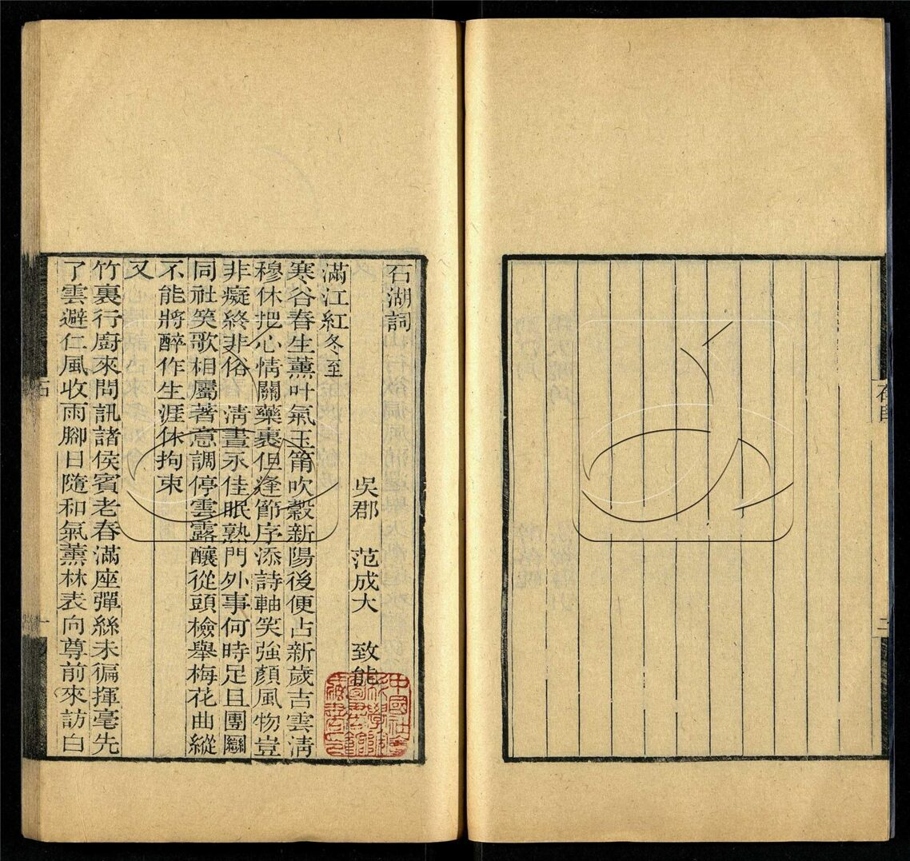 石湖詞
吳郡 范成大 致能
滿江紅冬至
寒谷春生薰叶氣玉筩吹穀新陽後便占新歲吉雲清
穆休把心情關藥裹但逢節序添詩軸笑強顏風物豈
非癡終非俗 清晝永佳眠熟門外事何時足且團圞
同社笑歌相屬著意調停雲露釀從頭檢舉梅花曲縱
不能將醉作生涯休拘束
又
竹裏行廚來問訊諸侯賓老春滿座彈絲未徧揮毫先
了雲避仁風收雨腳日隨和氣薰林表向尊前來訪白
石
一